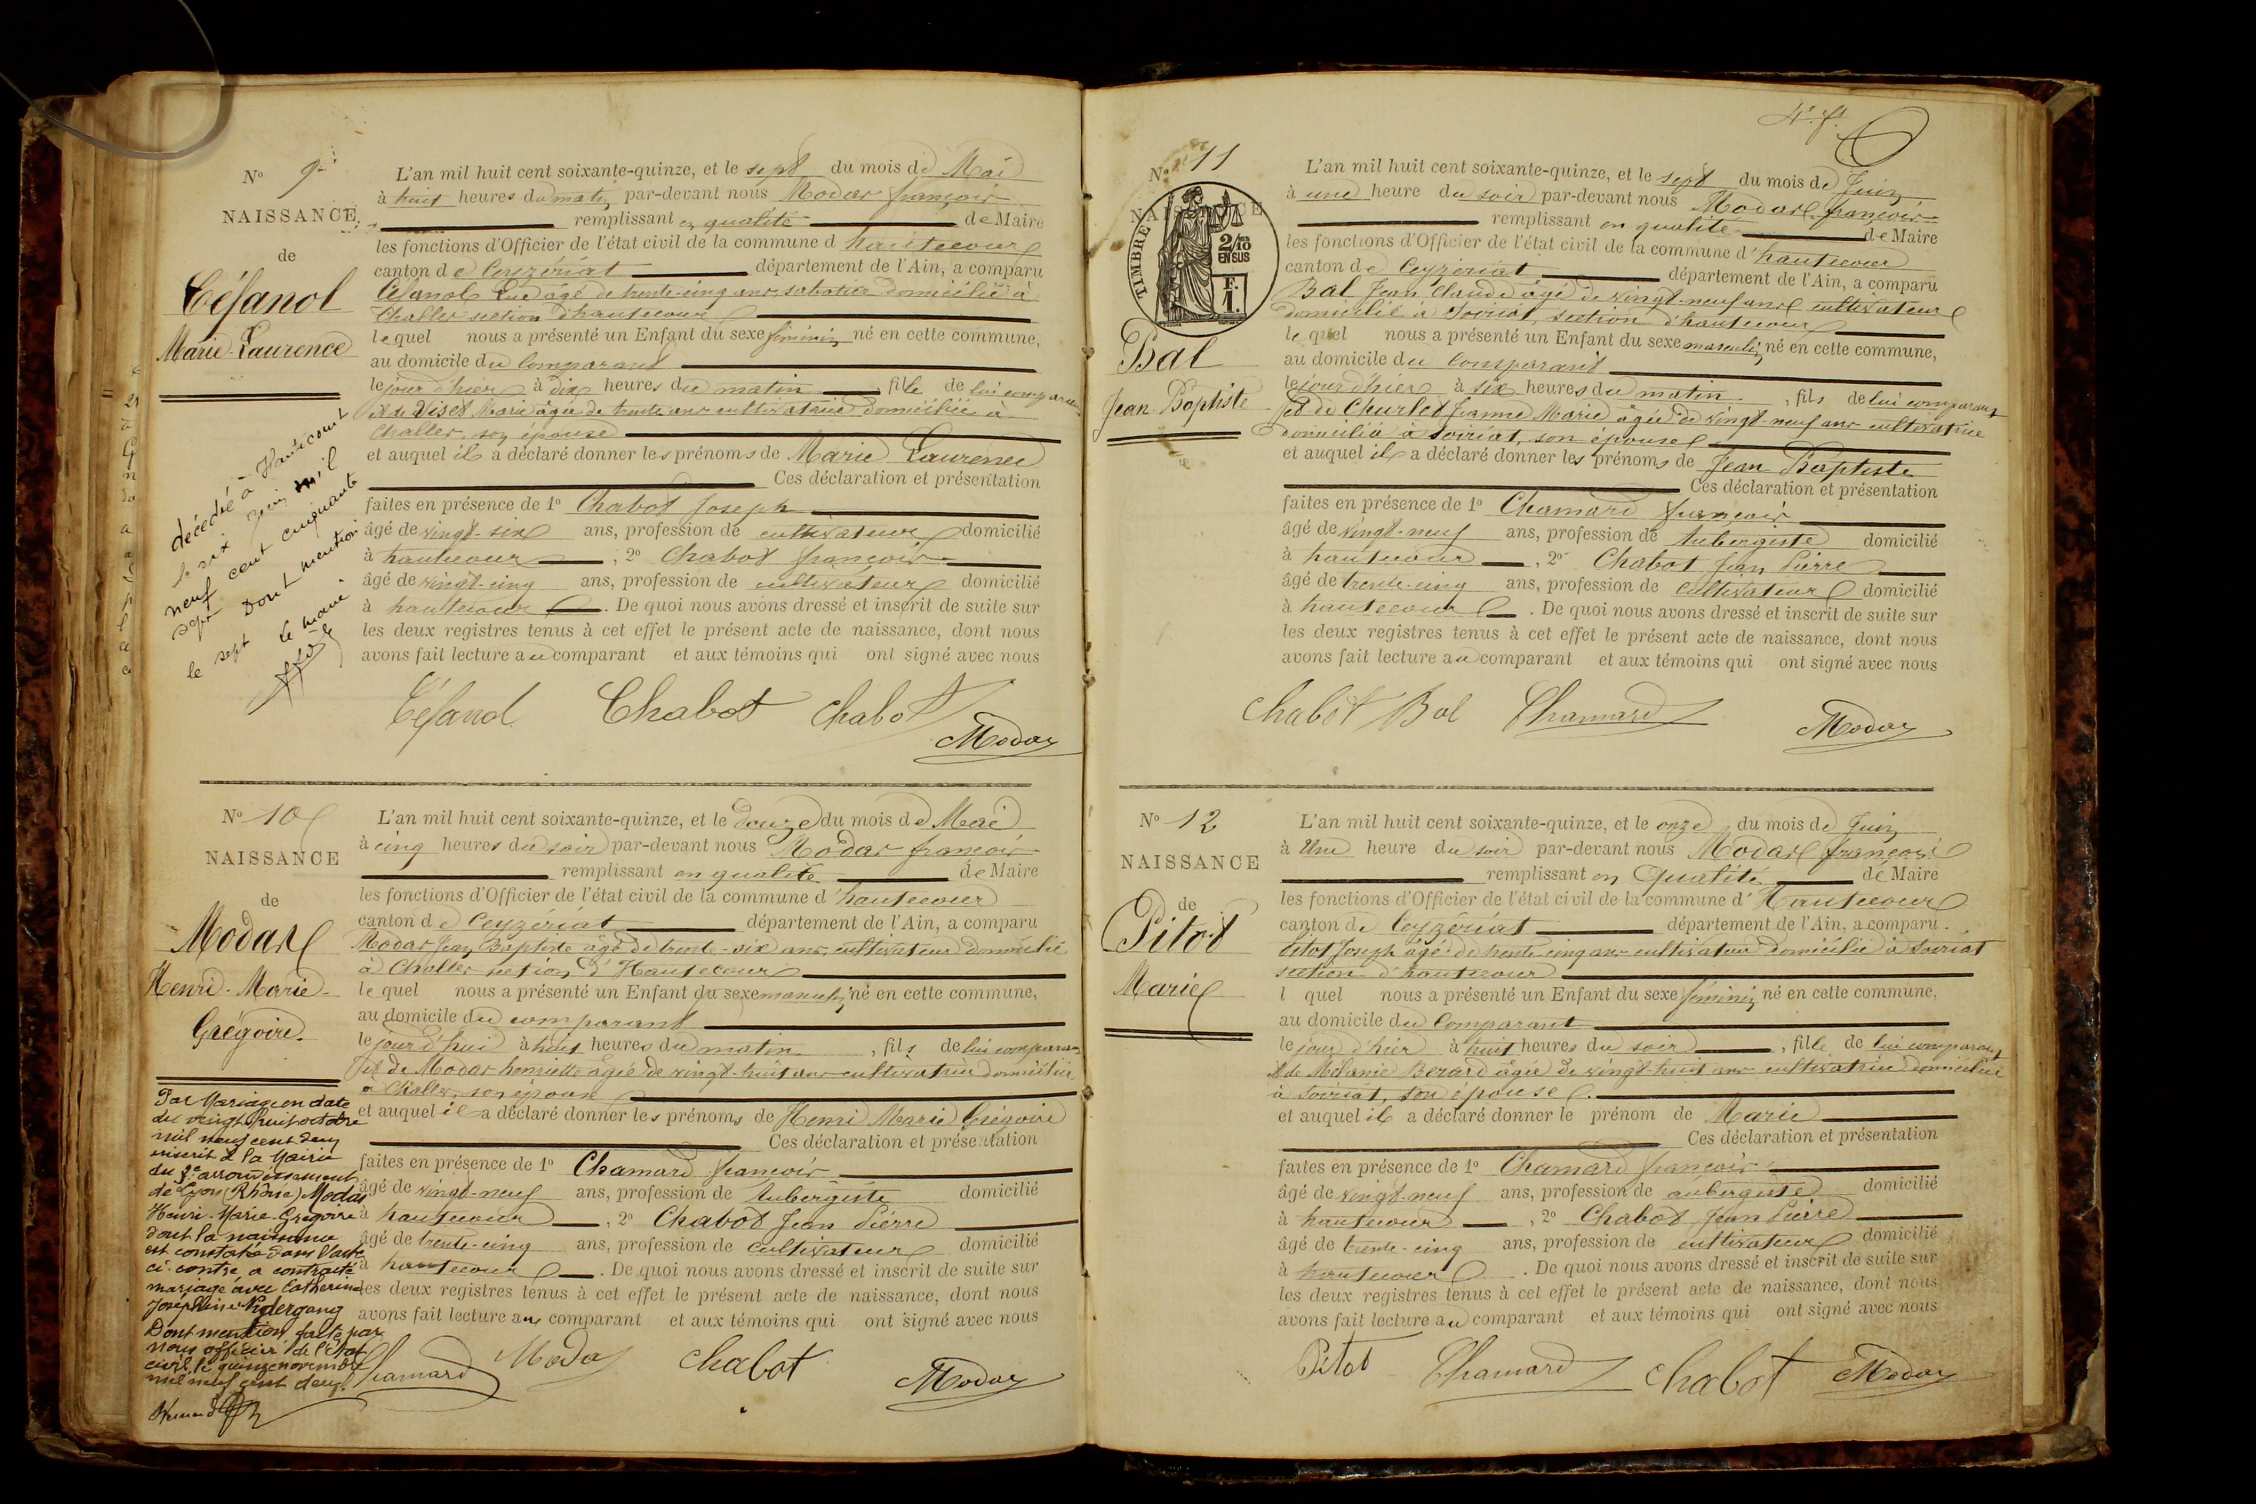 N° 9
NAISSANCE
de
Téfanol
Marie-Laurence
L'an mil huit cent soixante-quinze, et le sept du mois de Mai
à huit heures du matin par-devant nous Modar françois
remplissant en qualité de Maire
les fonctions d'Officier de l'état civil de la commune d'hautecour
canton de Ceyzériat département de l'Ain, a comparu
âgé de trente-cinq ans sabotier domicilié à
Challes section d'hautecour
lequel nous a présenté un Enfant du sexe féminin né en cette commune,
au domicile du Comparant
le jour d'hier à dix heures du matin fille de lui comparant
et de Marie âgée de trente ans cultivatrice domiciliée à
Challes, son épouse
et auquel il a déclaré donner les prénoms de Marie Laurence
Ces déclaration et présentation
faites en présence de 1° Chabot Joseph
âgé de vingt-six ans, profession de cultivateur domicilié
à hautecour ; 2° Chabot françois
âgé de vingt-cinq ans, profession de cultivateur domicilié
à hautecour . De quoi nous avons dressé et inscrit de suite sur
les deux registres tenus à cet effet le présent acte de naissance, dont nous
avons fait lecture au comparant et aux témoins qui ont signé avec nous
décédé à
le six juin mil
neuf cent cinquante
sept Dont mention
le sept le maire
Chabot Chabot Modar
N° 10
NAISSANCE
de
Modar
Henri-Marie-
Grégoire.
L'an mil huit cent soixante-quinze, et le douze du mois de Mai
à cinq heures du soir par-devant nous Modar françois
remplissant en qualité de Maire
les fonctions d'Officier de l'état civil de la commune d'hautecour
canton de Ceyzériat département de l'Ain, a comparu
Modar Jean Baptiste âgé de trente-six ans cultivateur domicilié
à Challes section d'Hautecour
lequel nous a présenté un Enfant du sexe masculin né en cette commune,
au domicile du comparant
le jour d'hui à huit heures du matin , fils de lui comparant
et de Modar henriette âgée de vingt-huit ans cultivatrice domiciliée
à Challes, son épouse
et auquel il a déclaré donner les prénoms de Henri Marie Grégoire
Ces déclaration et présentation
faites en présence de 1° Chamard françois
âgé de vingt-neuf ans, profession de Aubergiste domicilié
à hautecour ; 2° Chabot Jean Pierre
âgé de trente-cinq ans, profession de cultivateur domicilié
à hautecour . De quoi nous avons dressé et inscrit de suite sur
les deux registres tenus à cet effet le présent acte de naissance, dont nous
avons fait lecture au comparant et aux témoins qui ont signé avec nous
Par Mariage en date
du vingt huit octobre
mil neuf cent deux
inscrit à la Mairie
du 3e arrondissement
de Lyon (Rhône) Modar
Henri-Marie-Grégoire
dont la naissance
est constatée dans l'acte
ci-contre a contracté
mariage avec Catherine
Joséphine
Dont mention faite par
nous officier de l'état
civil le quinze novembre
mil neuf cent deux.
Chamard Modar Chabot Modar
4e ft
N° 11
NAISSANCE
TIMBRE
2/10 EN SUS
F. 1.
Bal
Jean-Baptiste
L'an mil huit cent soixante-quinze, et le sept du mois de Juin
à une heure du soir par-devant nous Modar françois
remplissant en qualité de Maire
les fonctions d'Officier de l'état civil de la commune d'hautecour
canton de Ceyzériat département de l'Ain, a comparu
Bal Jean Claude âgé de vingt-neuf ans cultivateur
domicilié à Soiriat, section d'hautecour
lequel nous a présenté un Enfant du sexe masculin né en cette commune,
au domicile du Comparant
le jour d'hier à six heures du matin , fils de lui comparant
et de Churlet Jeanne Marie âgée de vingt-neuf ans cultivatrice
domiciliée à Soiriat, son épouse
et auquel il a déclaré donner les prénoms de Jean Baptiste
Ces déclaration et présentation
faites en présence de 1° Chamard françois
âgé de vingt-neuf ans, profession de Aubergiste domicilié
à hautecour , 2° Chabot Jean Pierre
âgé de trente-cinq ans, profession de cultivateur domicilié
à hautecour . De quoi nous avons dressé et inscrit de suite sur
les deux registres tenus à cet effet le présent acte de naissance, dont nous
avons fait lecture au comparant et aux témoins qui ont signé avec nous
Chabot Bal Chamard Modar
N° 12
NAISSANCE
de
Pitot
Marie
L'an mil huit cent soixante-quinze, et le onze du mois de Juin
à Une heure du soir par-devant nous Modar françois
remplissant en Qualité de Maire
les fonctions d'Officier de l'état civil de la commune d'Hautecour
canton de Ceyzériat département de l'Ain, a comparu.
Pitot Joseph âgé de trente cinq ans cultivateur domicilié à Soiriat
section d'hautecour
l quel nous a présenté un Enfant du sexe féminin né en cette commune,
au domicile du Comparant
le jour d'hier à huit heures du soir , fille de lui comparant
et de Mélanie Berard âgée de vingt-huit ans cultivatrice domiciliée
à Soiriat, son épouse.
et auquel il a déclaré donner le prénom de Marie
Ces déclaration et présentation
faites en présence de 1° Chamard françois
âgé de vingt-neuf ans, profession de aubergiste domicilié
à hautecour , 2° Chabot Jean Pierre
âgé de trente-cinq ans, profession de cultivateur domicilié
à hautecour . De quoi nous avons dressé et inscrit de suite sur
les deux registres tenus à cet effet le présent acte de naissance, dont nous
avons fait lecture au comparant et aux témoins qui ont signé avec nous
Pitot Chamard Chabot Modar